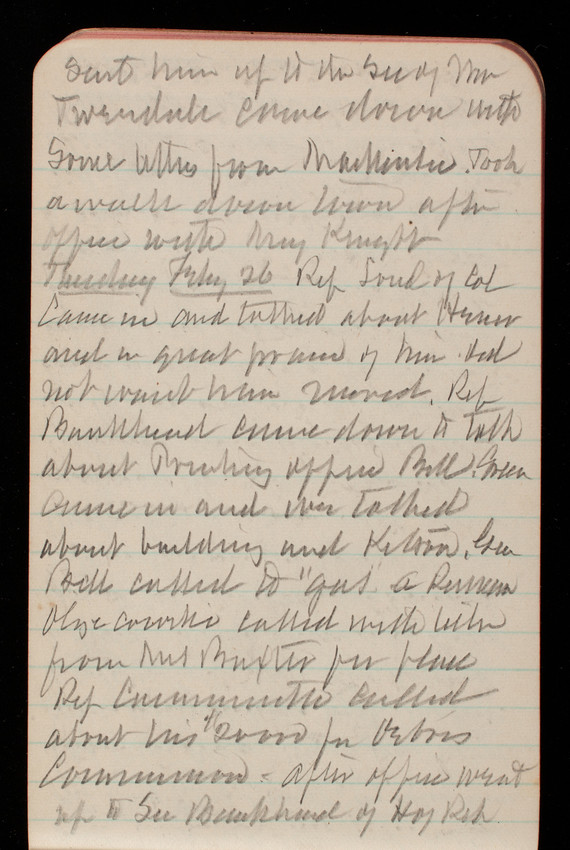 sent him up to the Secy Mr
Tweedale came down with
Some letters from MacKenzie. Took
a walk down town after
office with Maj Knight
Tuesday Feby 26 Rep of Col
Came in and talked about
and in great praise of him did
not want him moved. Rep
Bankhead came down to talk
about Printing office Bill. Green
came in and we talked
about building and Kelton. Gen
Bell called to "gas" a
called with letter
from Mrs Baxter for place
Rep Caminetti called
about his for Debris
Commission - after office went
up to See Bankhead of Ho of Rep.